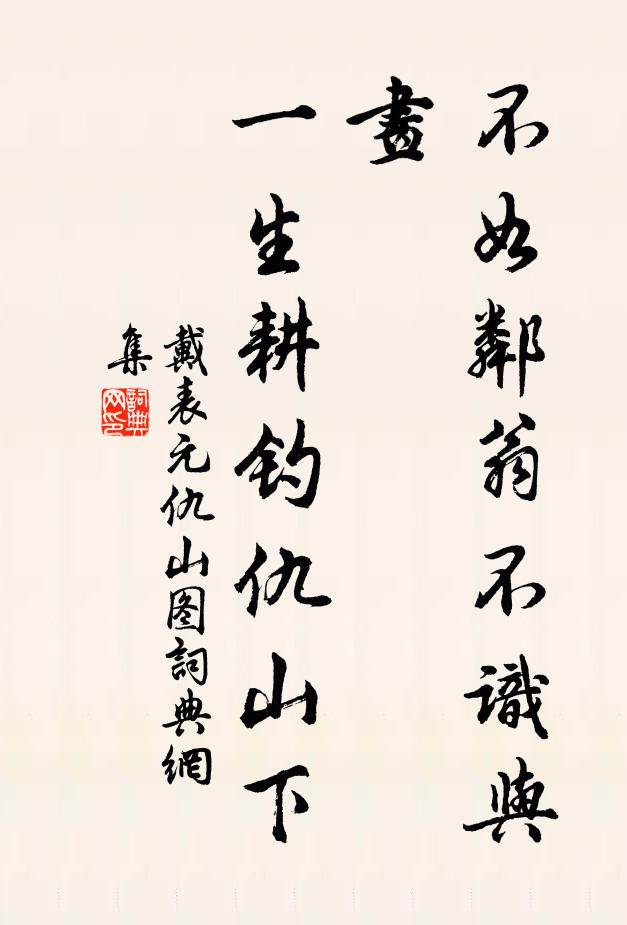 不如鄰翁不識與
畫
一生耕釣仇山下
戴表元仇山图詞典網
集
詞典
网印